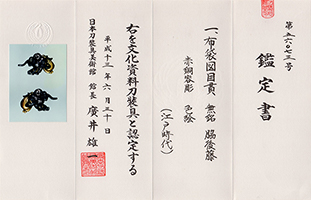 第五六〇七三号
鑑定書
一 布袋図目貫 無銘 脇後藤
赤銅容彫 色絵
(江戸時代)
右を文化資料刀装具と認定する
平成十三年六月三十日
日本刀装具美術館 館長 廣井雄一